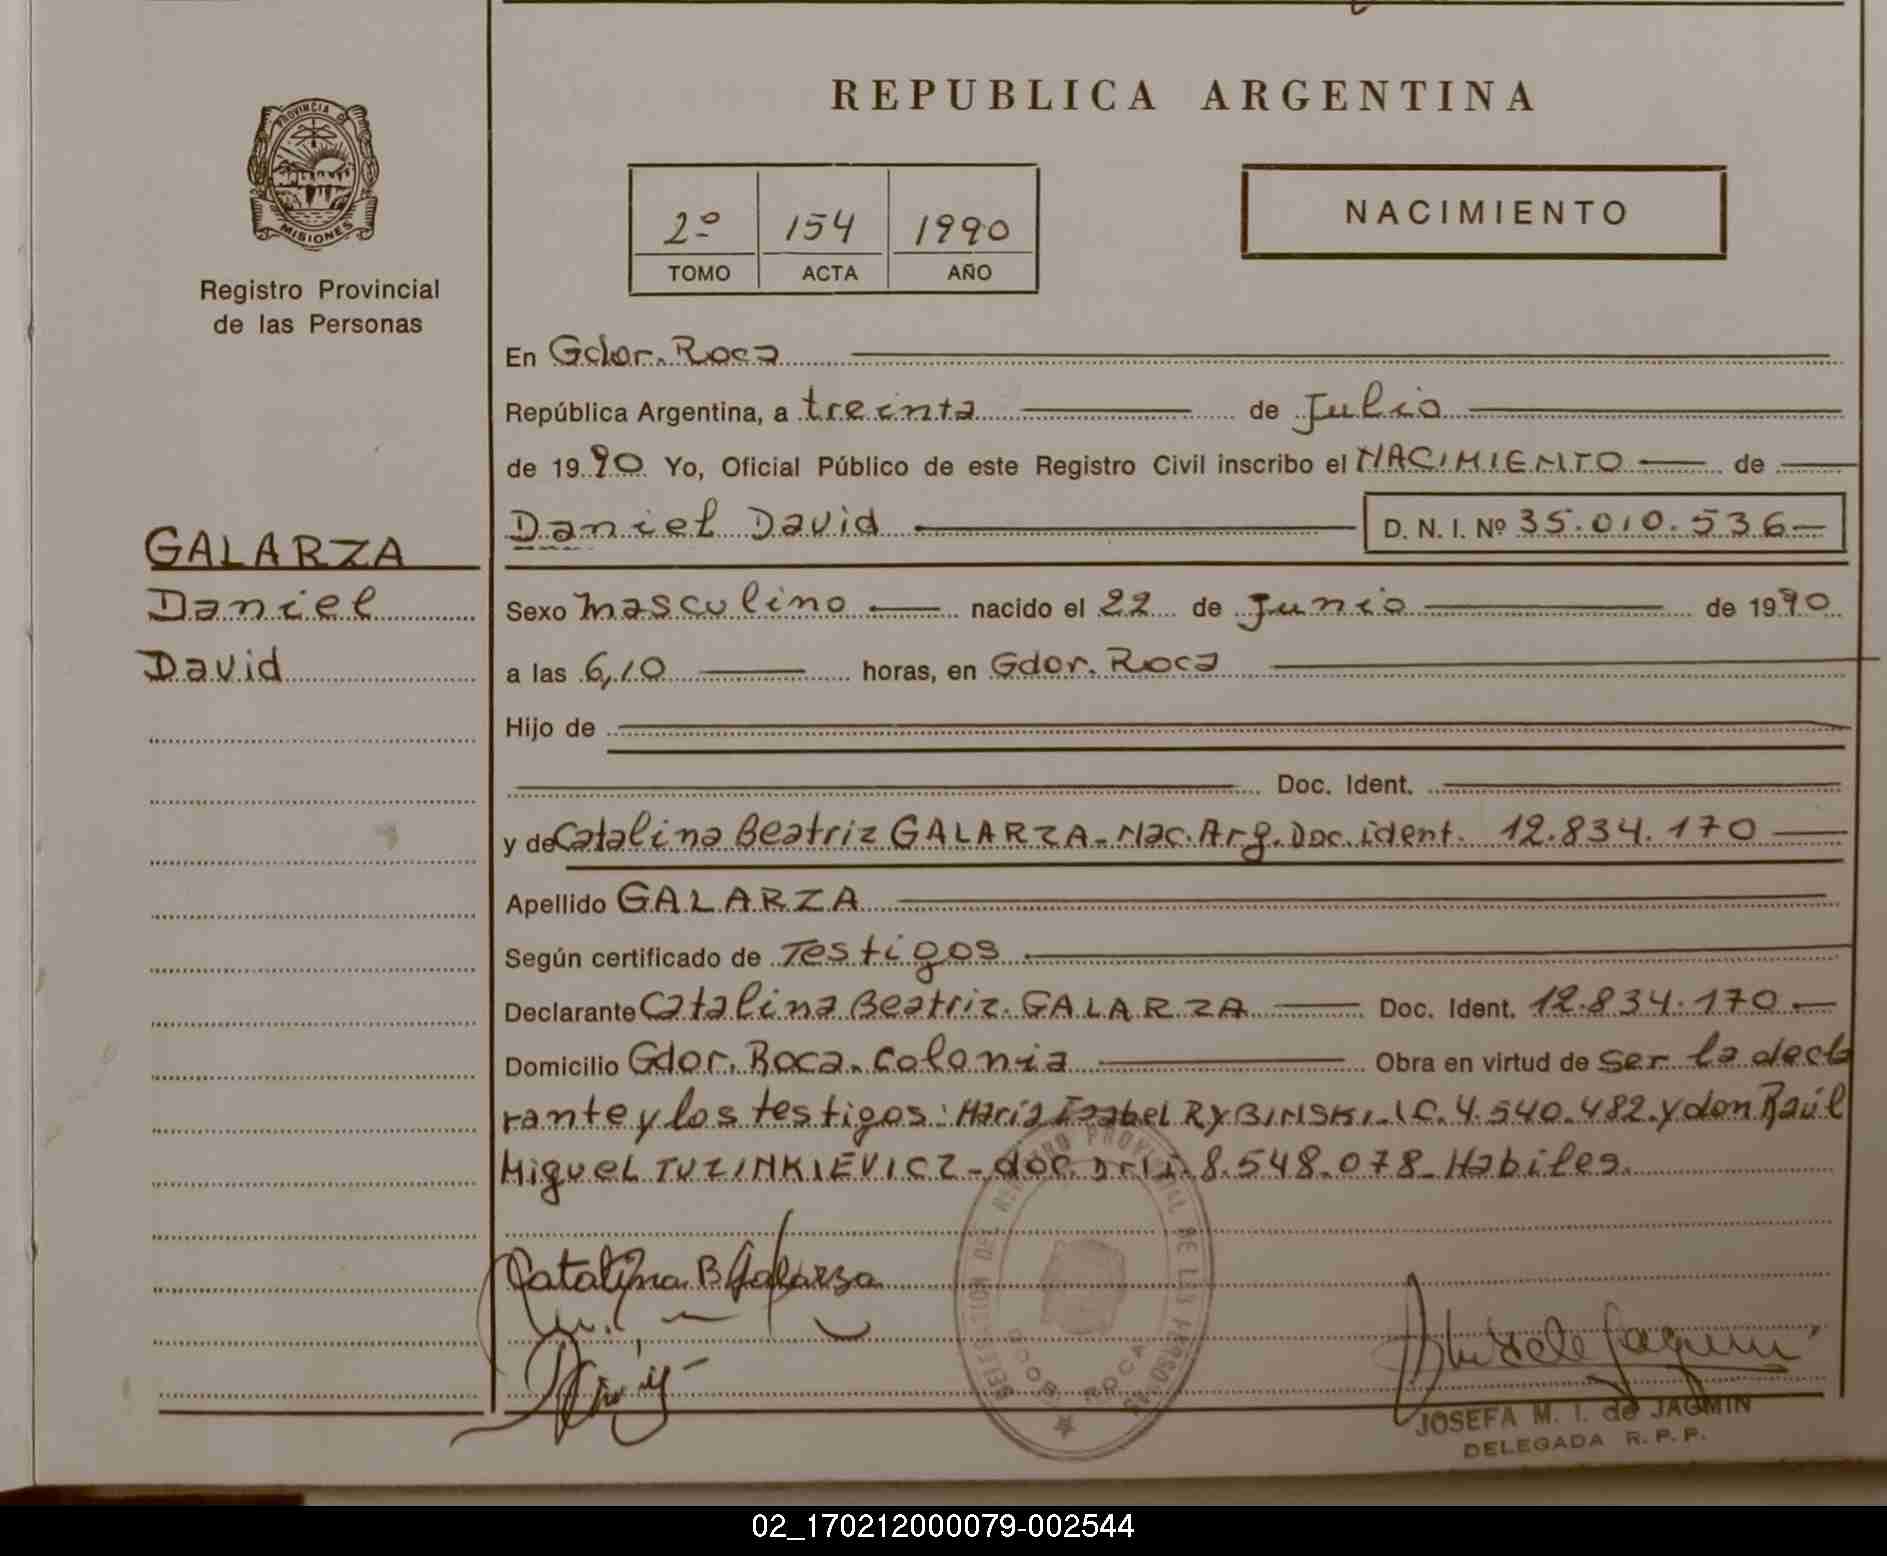 REPUBLICA ARGENTINA
PROVINCIA DE
MISIONES
Registro Provincial
de las Personas
2º 154 1990
TOMO ACTA AÑO
NACIMIENTO
En Gdor. Roca
República Argentina, a treinta de Julio
de 1990 Yo, Oficial Público de este Registro Civil inscribo el NACIMIENTO de
Daniel David D. N. I. Nº 35.010.536
GALARZA
Daniel
David
Sexo masculino nacido el 22 de Junio de 1990
a las 6,10 horas, en Gdor. Roca
Hijo de
Doc. Ident.
y de Catalina Beatriz GALARZA - Nac. Arg. Doc. ident. 12.834.170
Apellido GALARZA
Según certificado de Testigos
Declarante Catalina Beatriz GALARZA Doc. Ident. 12.834.170.-
Domicilio Gdor. Roca. Colonia Obra en virtud de ser la decla
rante y los testigos: María Isabel RYBINSKI - LC. 4.540.482. y don Raúl
Miguel TUZINKIEVICZ - doc. DNI. 8.548.078 - Habiles.
Catalina B Galarza
DIRECCION DEL REGISTRO PROVINCIAL DE LAS PERSONAS
ROCA
JOSEFA M. I. de JAGMIN
DELEGADA R. P. P.
02_170212000079-002544